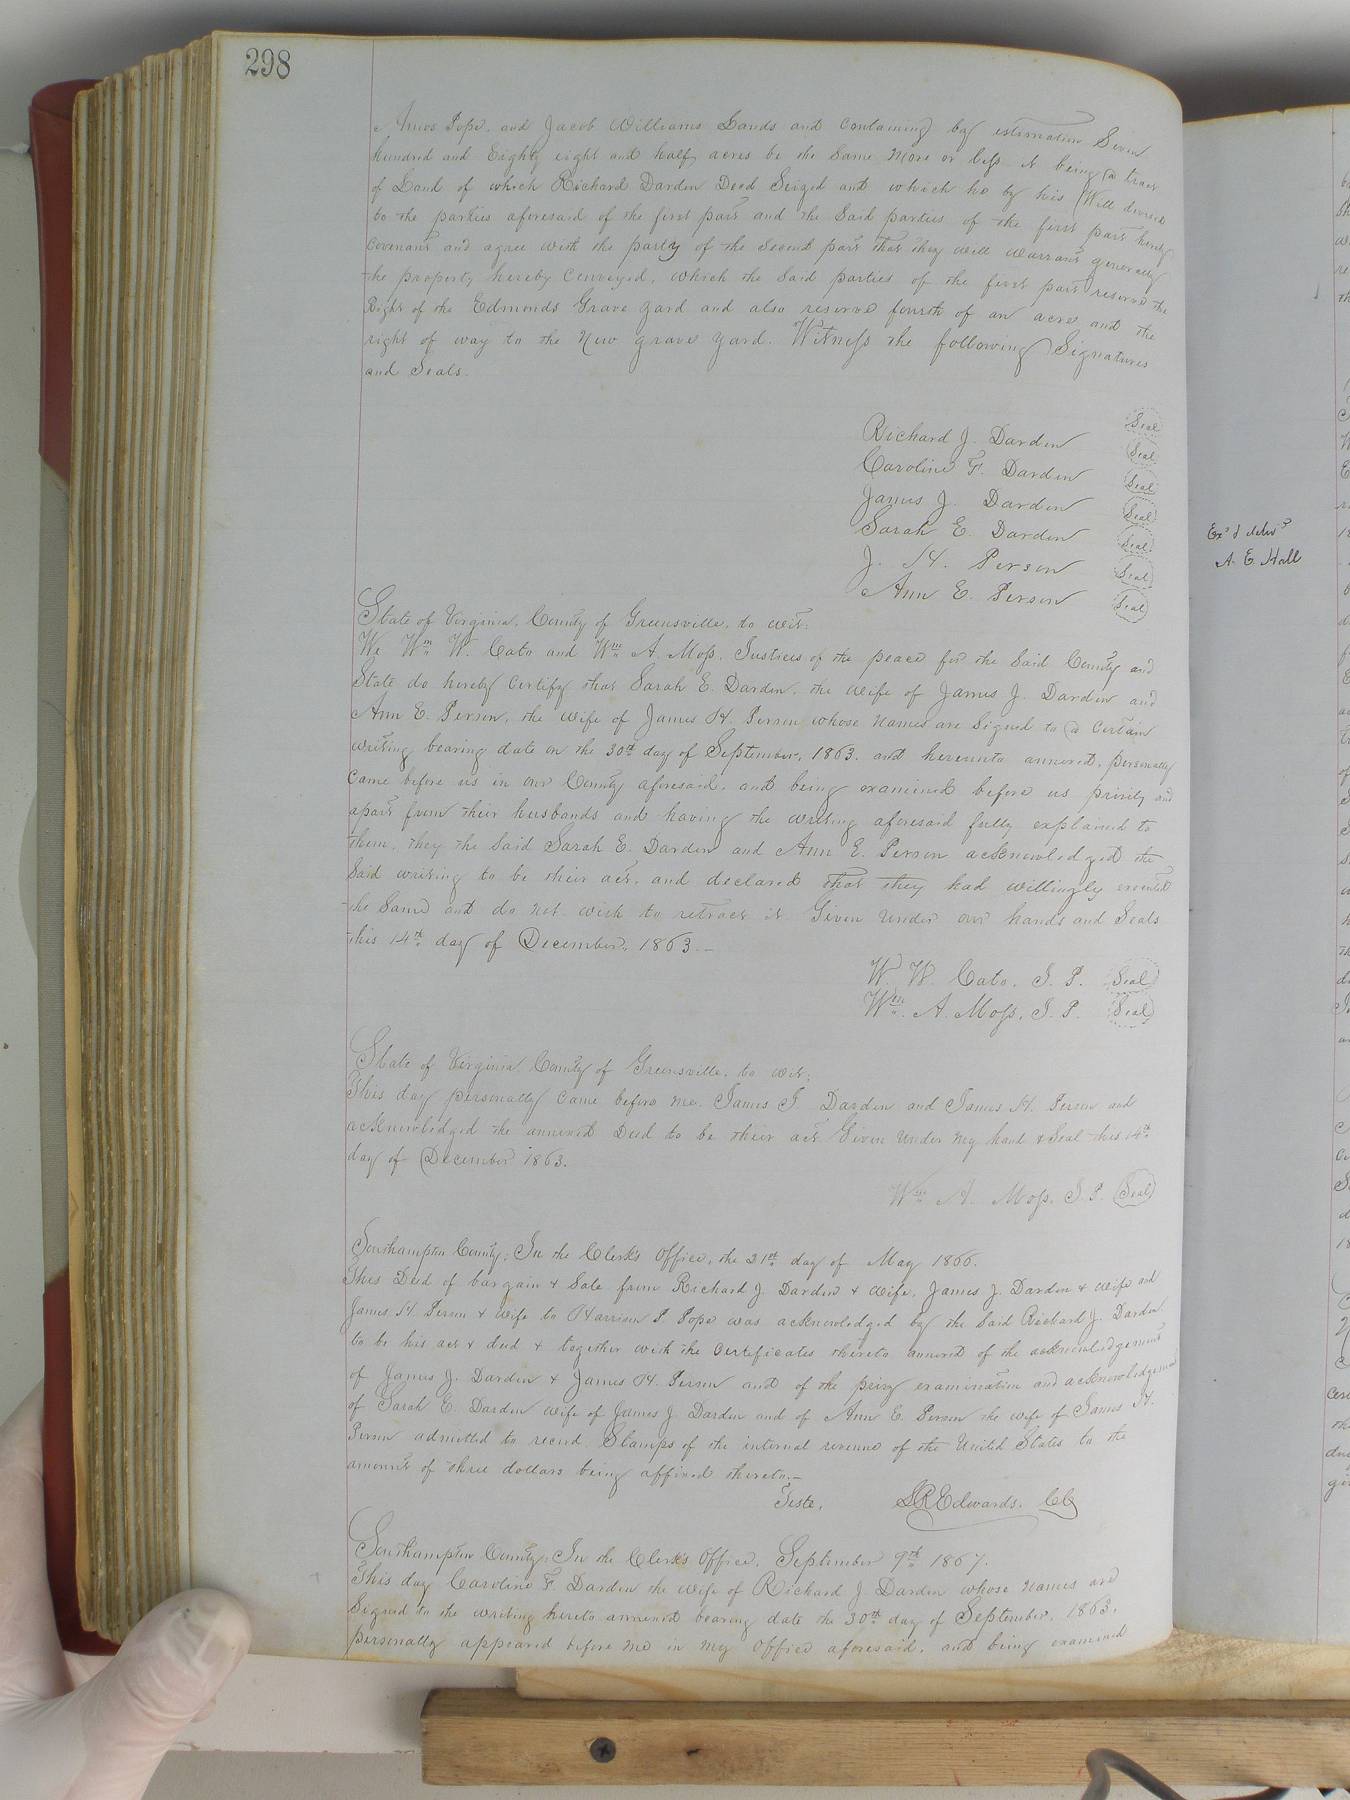 298
Amos Pope, and Jacob Williams Lands and Containing by estimation Seven
hundred and Eighty eight and half acres be the Same More or less it being a tract
of Land of which Richard Darden Deed Seized and which he by his Will devised
to the parties aforesaid of the first part and the Said parties of the first part hereby
Covenant and agree with the party of the Second part that they will warrant generally
the property hereby Conveyed, which the Said parties of the first part reserve the
Right of the Edmonds Grave yard and also reserve fourth of an acre and the
right of way to the New grave yard. Witness the following Signatures
and Seals.
Richard J. Darden Seal
Caroline F. Darden Seal
James J. Darden Seal
Sarah E. Darden Seal
J. H. Person Seal
Ann E. Person Seal
Seal
State of Virginia, County of Greensville, to wit:
We Wm W. Cato and Wm A. Moss, Justices of the peace for the Said County and
State do hereby Certify that Sarah E. Darden, the wife of James J. Darden and
Ann E. Person, the wife of James H. Person whose names are Signed to a Certain
writing bearing date on the 30th day of September, 1863. and hereunto annexed, personally
Came before us in our County aforesaid, and being examined before us privily and
apart from their husbands and having the writing aforesaid fully explained to
them, they the Said Sarah E. Darden and Ann E. Person acknowledged the
Said writing to be their act, and declared that they had willingly executed
the Same and do not wish to retract it. Given under our hands and Seals
this 14th day of December, 1863.—
W. W. Cato, J. P. Seal
Wm. A. Moss, J. P. Seal
State of Virginia County of Greensville, to wit;
This day personally Came before me James J. Darden and James H. Person and
acknowledged the annexed Deed to be their act Given under my hand & Seal this 14th
day of December 1863.
Wm A. Moss, J. P. Seal
Southampton County; In the Clerk's Office, the 21st day of May 1866.
This Deed of bargain & Sale from Richard J. Darden & wife, James J. Darden & wife and
James H. Person & wife to Harrison P. Pope was acknowledged by the Said Richard J. Darden
to be his act & deed & together with the Certificates thereto annexed of the acknowledgements
of James J. Darden & James H. Person and of the privy examination and acknowledgement
of Sarah E. Darden wife of James J. Darden and of Ann E. Person the wife of James H.
Person admitted to record. Stamps of the internal revenue of the United States to the
amount of three dollars being affixed thereto.—
Teste, LR Edwards, CC
Southampton County; In the Clerk's Office, September 9th 1867.
This day Caroline F. Darden the wife of Richard J Darden whose names are
Signed to the writing hereto annexed bearing date the 30th day of September, 1863,
personally appeared before me in my office aforesaid, and being examined
Exd & delvd
A. E. Hall